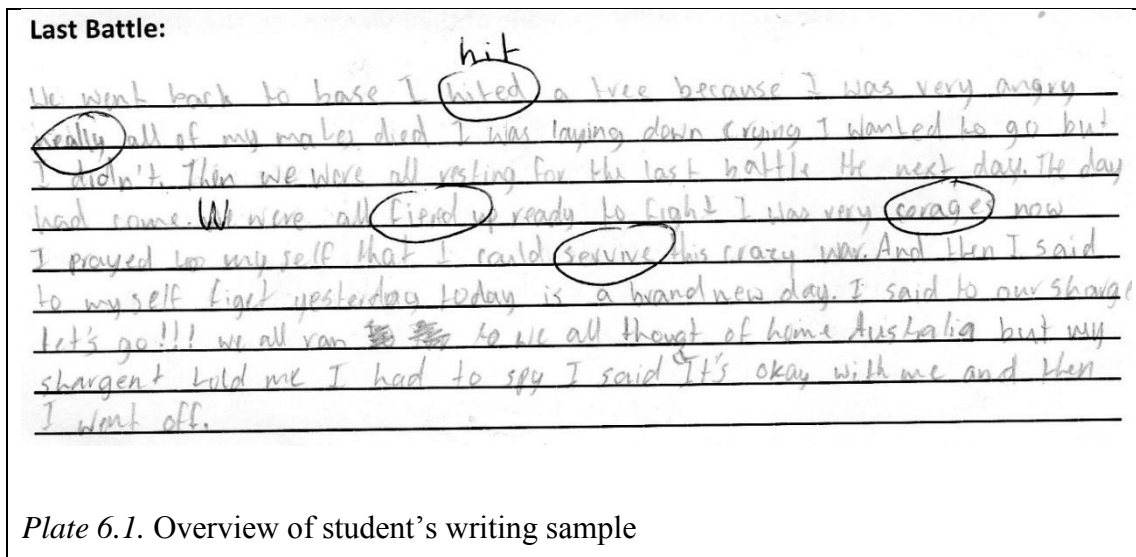 Last Battle:
hit
We went back to base I hited a tree because I was very angry
really all of my mates died I was laying down crying I wanted to go but
I didn't. Then we were all resting for the last battle the next day. The day
had come. We were all fierd up ready to fight I was very corages now
I prayed too my self that I could servive this crazy war. And then I said
to my self figet yesterday today is a brand new day. I said to our sharge
let's go!!! we all ran to we all thougt of home Australia but my
shargent told me I had to spy I said It's okay with me and then
I went off.
Plate 6.1. Overview of student's writing sample